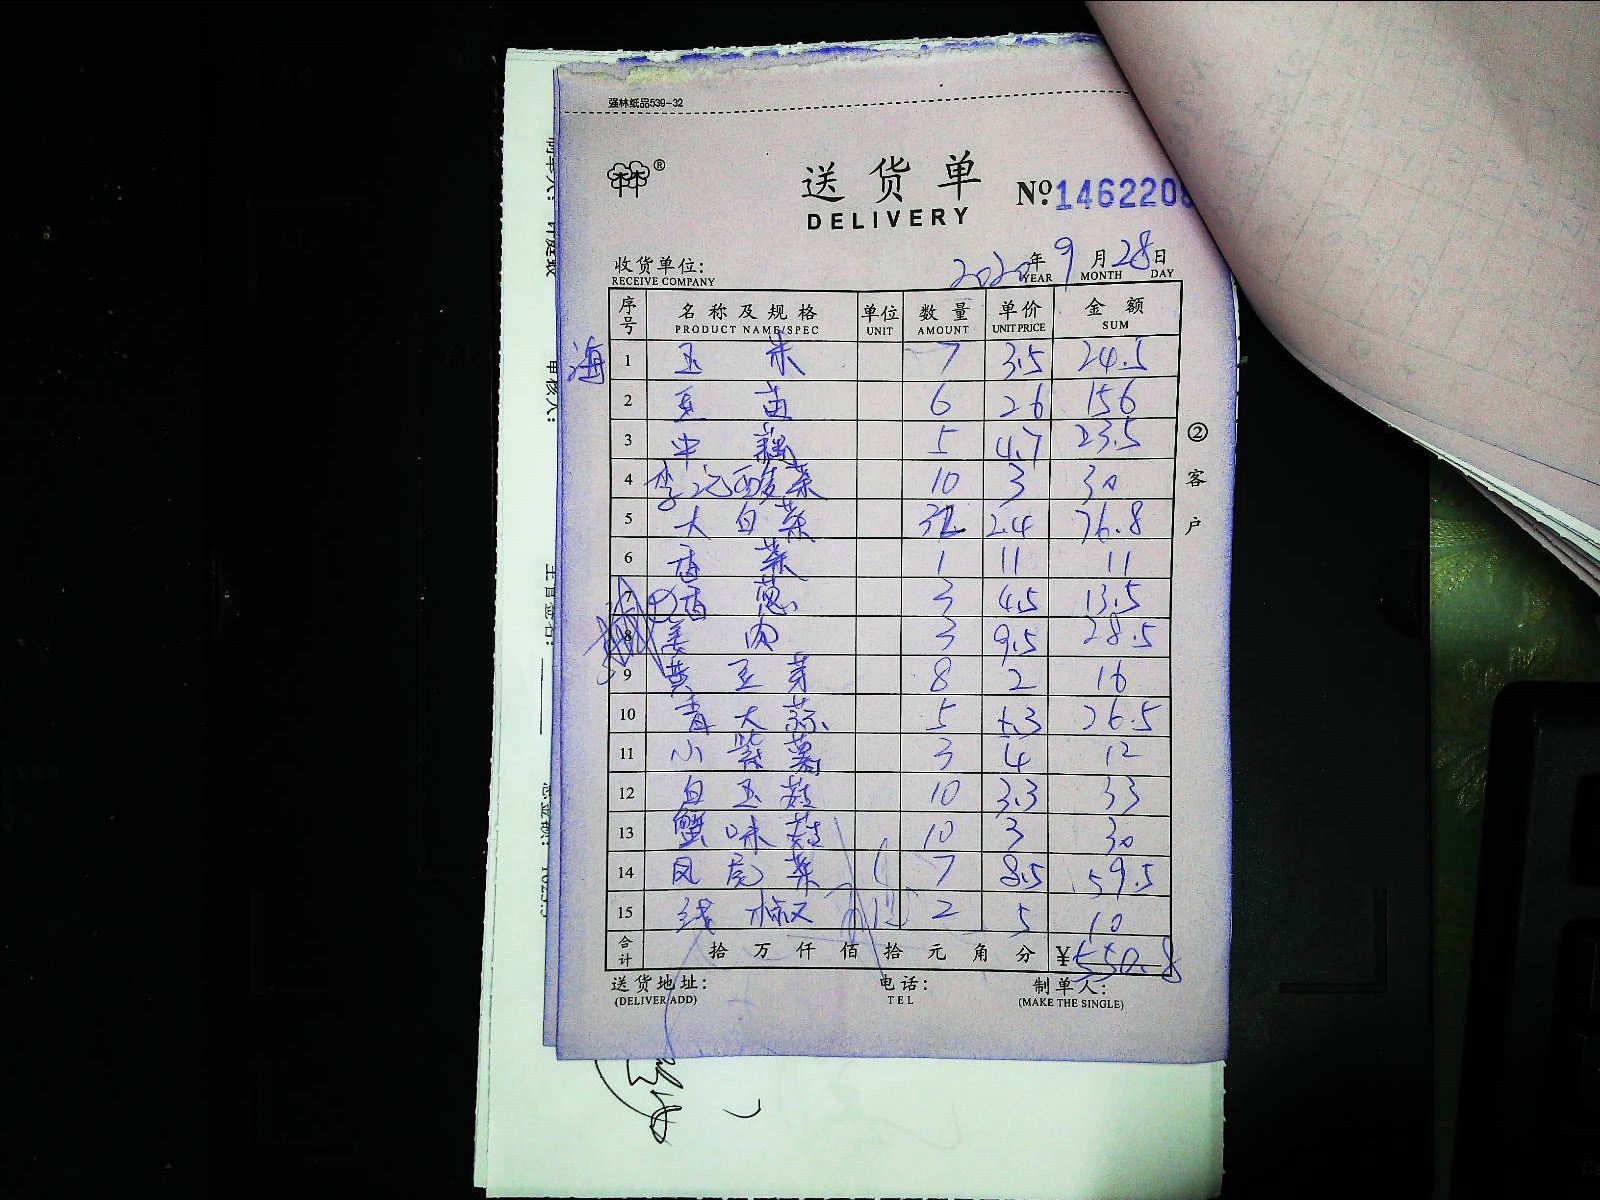 强林纸品539-32
林 ®
送货单
DELIVERY
№ 1462208
收货单位:
RECEIVE COMPANY
2020年 9月 28日
YEAR MONTH DAY
序号 名称及规格 单位 数量 单价 金额
PRODUCT NAME/SPEC UNIT AMOUNT UNIT PRICE SUM
海
1 玉米 7 3.5 24.5
2 豆苗 6 26 156
3 中藕 5 4.7 23.5
4 李记酸菜 10 3 30
5 大白菜 32 2.4 76.8
6 香菜 1 11 11
7 香葱 3 4.5 13.5
8 姜肉 3 9.5 28.5
9 黄豆芽 8 2 16
10 青大蒜 5 5.3 26.5
11 小紫薯 3 4 12
12 白玉菇 10 3.3 33
13 蟹味菇 10 3 30
14 凤尾菜 7 8.5 59.5
15 线椒 2 5 10
合计 拾 万 仟 佰 拾 元 角 分 ¥550.8
送货地址: 电话: 制单人:
(DELIVER ADD) TEL (MAKE THE SINGLE)
② 客户
审核人: